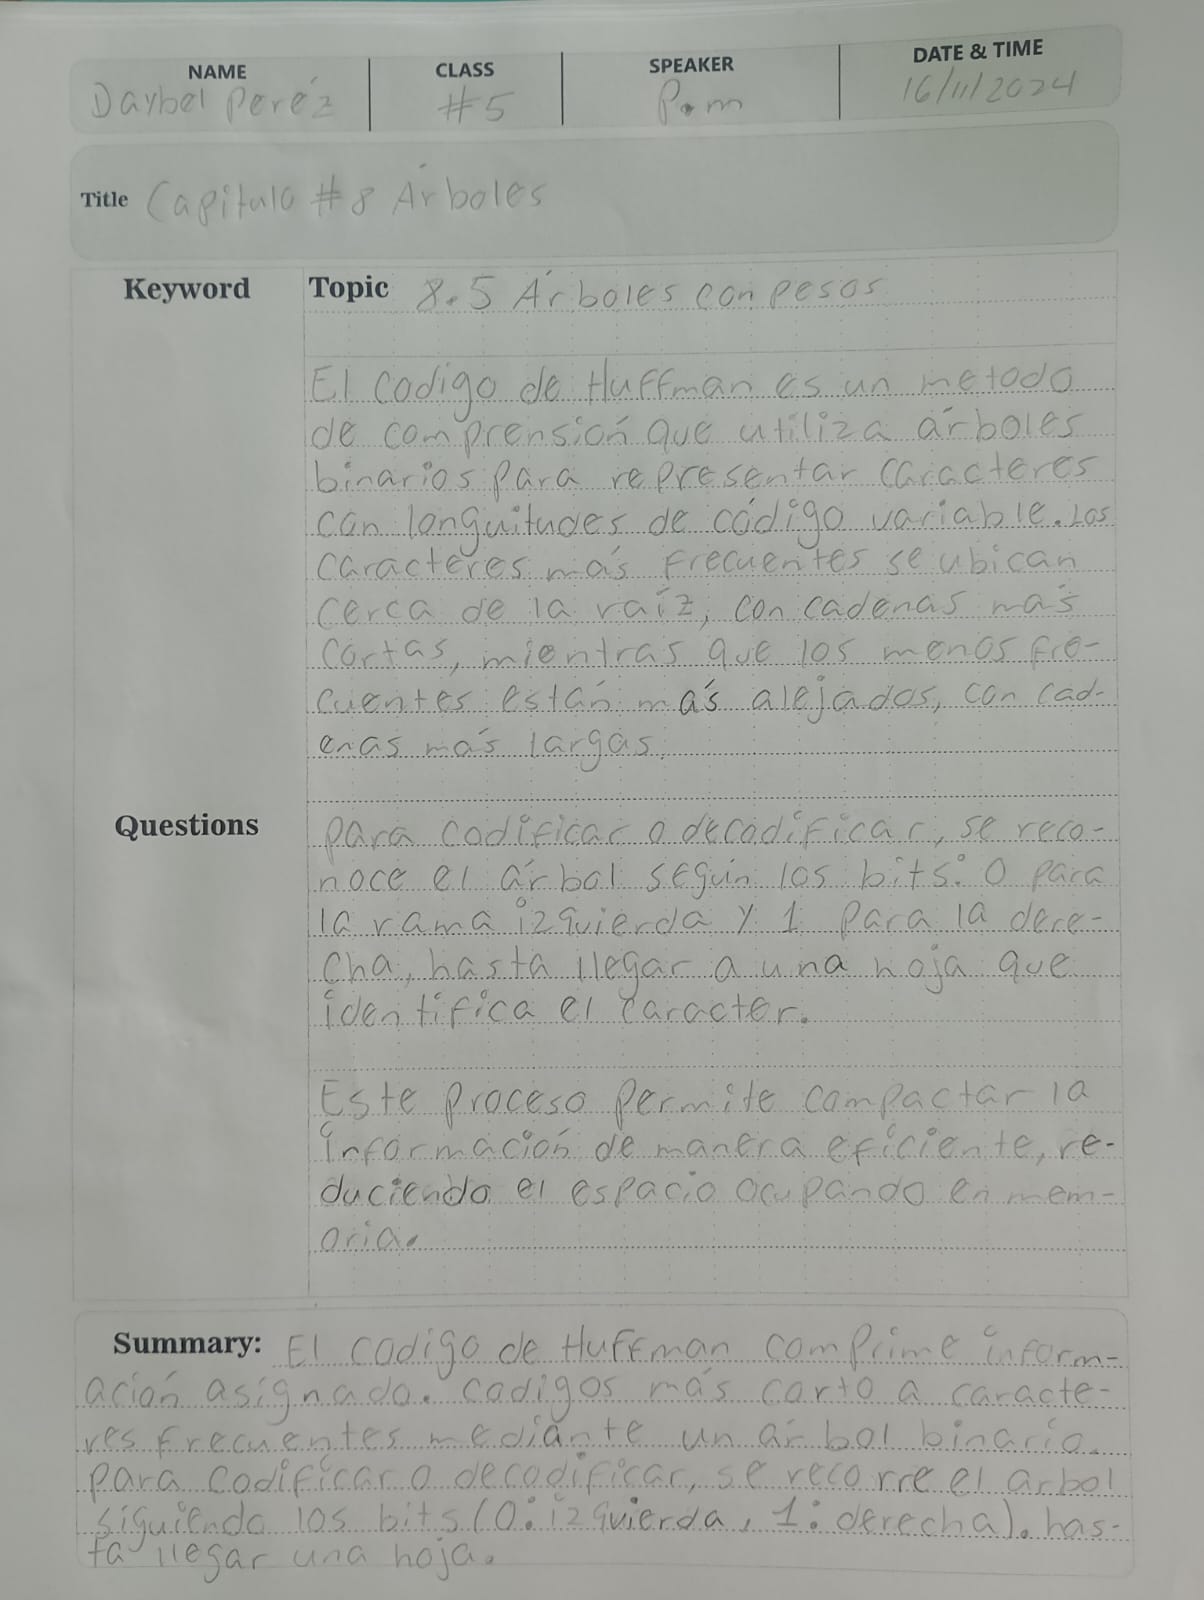 NAME CLASS SPEAKER DATE & TIME
Daybel Peréz #5 P.m 16/11/2024
Title Capitulo #8 Árboles
Keyword Topic 8.5 Árboles con pesos
El codigo de Huffman es un metodo
de comprensión que utiliza árboles
binarios para representar caracteres
con longuitudes de código variable. Los
caracteres más frecuentes se ubican
cerca de la raíz, con cadenas más
cortas, mientras que los menos fre-
cuentes están más alejados, con cad-
enas más largas.
Questions
para codificar o decodificar, se reco-
noce el árbol según los bits: 0 para
la rama izquierda y 1 para la dere-
cha, hasta llegar a una hoja que
identifica el caracter.
Este proceso permite compactar la
información de manera eficiente, re-
duciendo el espacio ocupando en mem-
oria.
Summary: El codigo de Huffman comprime inform-
ación asignado. codigos más corto a caracte-
res frecuentes mediante un árbol binario.
para codificar o decodificar, se recorre el arbol
siguiendo los bits (0: izquierda, 1: derecha). has-
ta llegar una hoja.